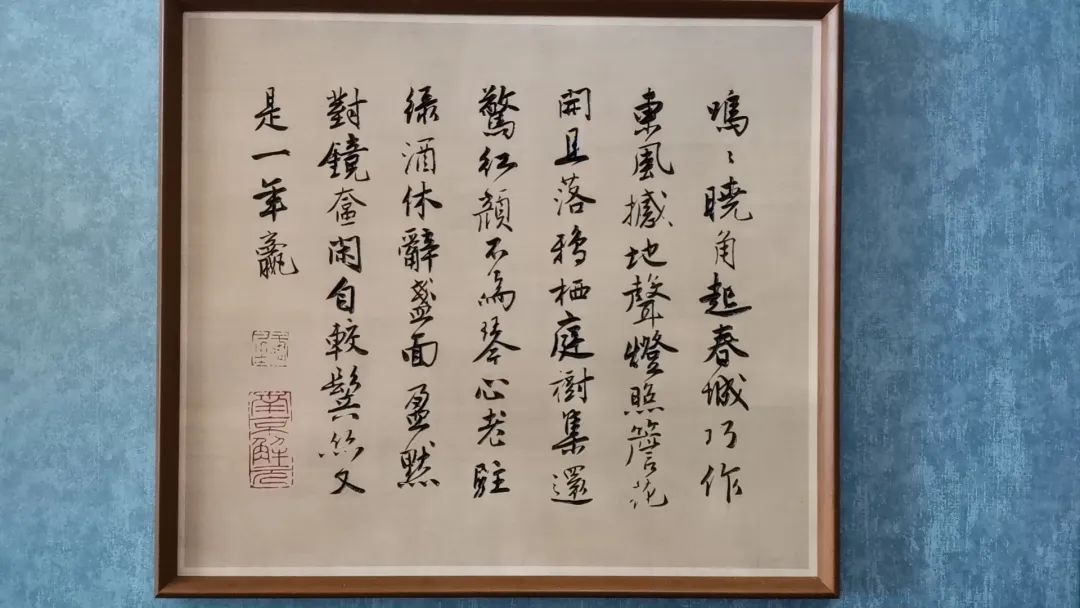 嗚〻曉角起春城巧作
東風撼地聲燈照簷花
開且落鴉栖庭樹集還
驚紅顔不爲琴心老駐
緑酒休辭盞面盈默
對鏡奩閑自較鬢絲又
是一年贏
南京解元